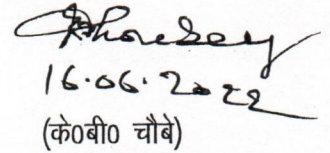 16.06.2022
(के०बी० चौबे)